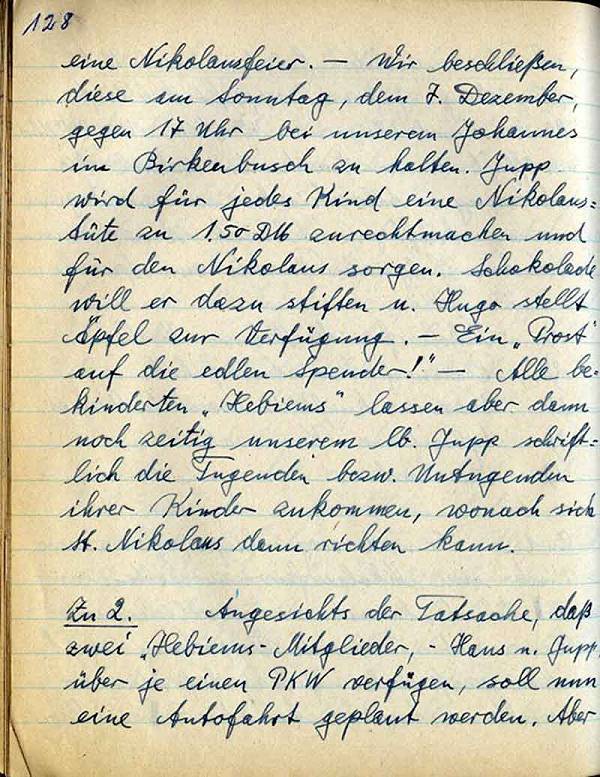 128
eine Nikolausfeier. – Wir beschließen,
diese am Sonntag, dem 7. Dezember,
gegen 17 Uhr bei unserem Johannes
im Birkenbusch zu halten. Jupp
wird für jedes Kind eine Nikolaus=
tüte zu 1.50 DM zurechtmachen und
für den Nikolaus sorgen. Schokolade
will er dazu stiften u. Hugo stellt
Äpfel zur Verfügung. – Ein „Prost"
auf die edlen Spender!" – Alle be-
kinderten „Hebiems" lassen aber dann
noch zeitig unserem lb. Jupp schrift=
lich die Tugenden bezw. Untugenden
ihrer Kinder zukommen, wonach sich
St. Nikolaus dann richten kann.
Zu 2. Angesichts der Tatsache, daß
zwei „Hebiems-Mitglieder, - Hans u. Jupp,
über je einen PKW verfügen, soll nun
eine Autofahrt geplant werden. Aber